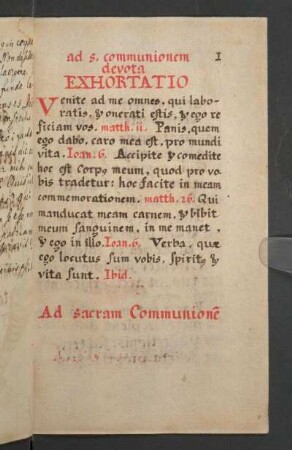 ad s. communionem 1
devota
EXHORTATIO
Venite ad me omnes, qui labo-
ratis, & onerati estis, & ego re
ficiam vos. matth. ii. Panis, quem
ego dabo, caro mea est, pro mundi
vita. Ioan. 6. Accipite & comedite
hoc est Corpus meum, quod pro vo-
bis tradetur: hoc facite in meam
commemorationem. matth. 26. Qui
manducat meam carnem, & bIbit
meum sanguinem, in me manet,
& ego in illo. Ioan. 6. Verba, quæ
ego locutus sum vobis, spiritus &
vita sunt. Ibid.
Ad sacram Communionē